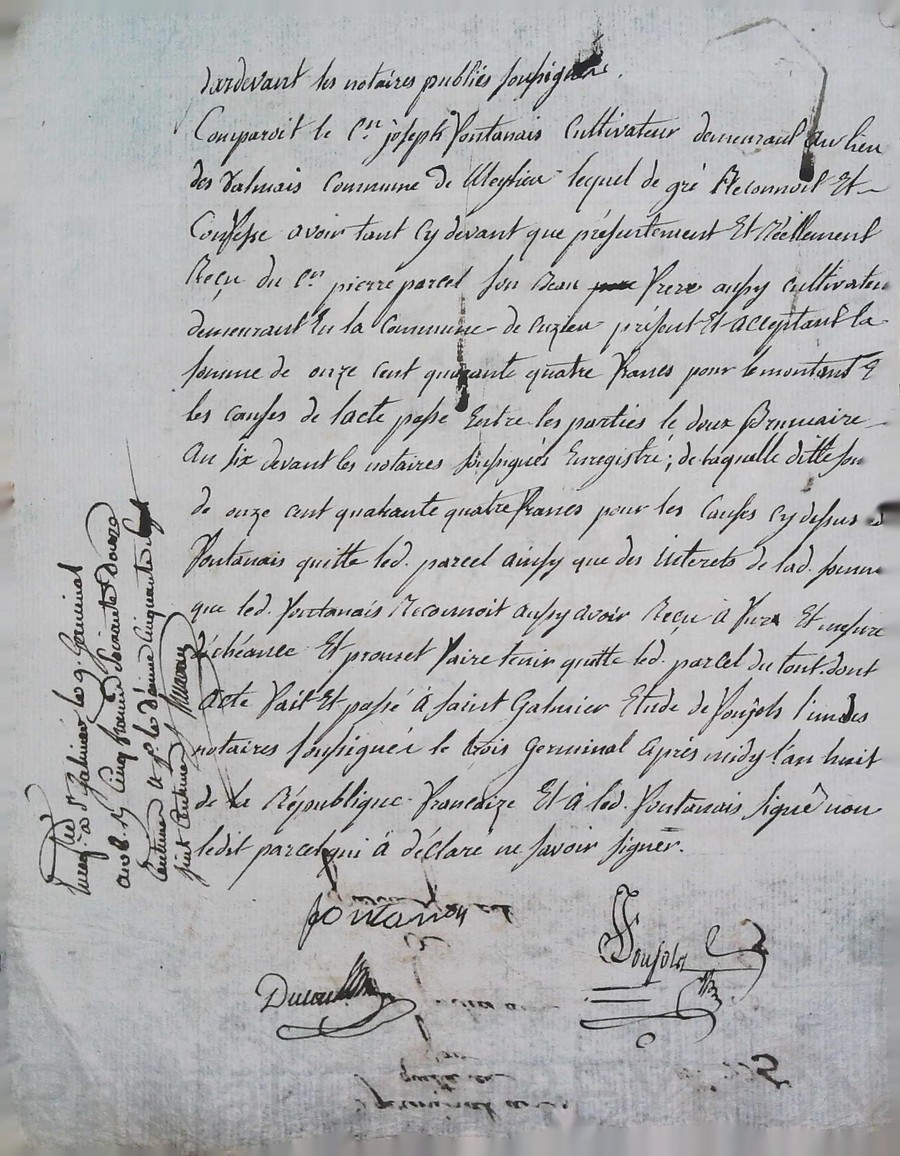 Pardevant les notaires publics soussignés.
Comparoit le C.en joseph fontanais Cultivateur demeurant au lieu
des Valmais Commune de Meylieu lequel de gré Reconnoit Et
Confesse avoir tant Cy devant que présentement Et Réellement
Reçu du C.en pierre parcel son Beau frere aussy cultivateu
demeurant En la Commune de cuzieu présent Et acceptant la
somme de onze cent quarante quatre francs pour le montant E
les causes de lacte passé Entre les parties le deux Brumaire
An six devant les notaires soussignés Enregistré; de laquelle ditte som
de onze cent quarante quatre francs pour les Causes Cy dessus
fontanais quitte led. parcel ainsy que des interets de lad. somm
que led. fontanais Reconnoit aussy avoir Reçu à fur Et mesure
d'échéance Et promet faire tenir quitte led. parcel du tout. dont
Acte fait Et passé à Saint Galmier Etude de Poujols l'un des
notaires soussignés le trois Germinal après midy l'an huit
de la République francaize Et à led. fontanais signé non
ledit parcel qui à déclare ne savoir signer.
fontanais
Poujols
Enreg.é à S.t Galmier le 9 Germinal
an 8. Rç cinq francs soixante douze
Centimes et p.r le dixieme cinquante sept
centimes